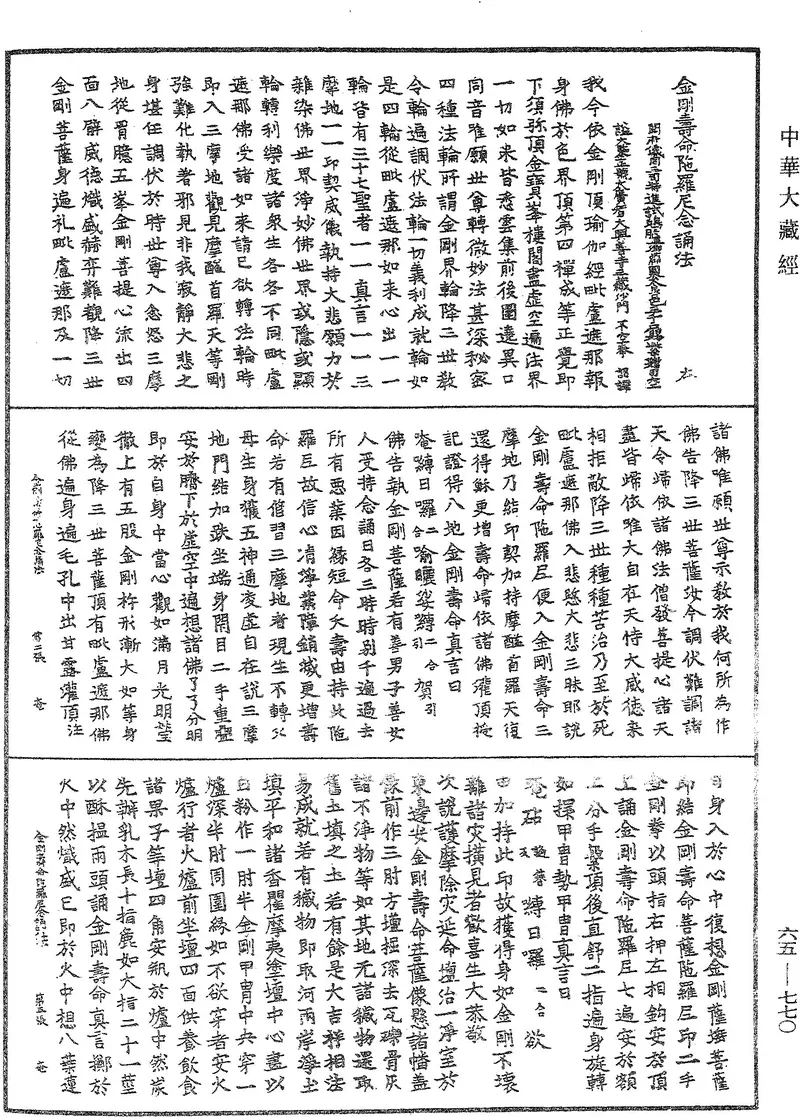 中華大藏經
金剛壽命陁羅尼念誦法 右
開府儀同三司特進試鴻臚卿肅國公食邑三千户賜紫贈司空
謚大鑒正號大廣智大興善寺三藏沙門不空奉 詔譯
我今依金剛頂瑜伽經毗盧遮那報
身佛於色界頂第四禪成等正覺即
下須弥頂金寶峯樓閣盡虛空遍法界
一切如来皆悉雲集前後圍遶異口
同音唯願世尊轉微妙法甚深秘密
四種法輪所謂金剛界輪降三世教
令輪遍調伏法輪一切義利成就輪如
是四輪從毗盧遮那如来心出一一
輪皆有三十七聖者一一真言一一三
摩地一一印契威儀執持大悲願力於
雜染佛世界淨妙佛世界或隱或顯
輪轉利樂度諸衆生各各不同毗盧
遮那佛受諸如来請已欲轉法輪時
即入三摩地觀見摩醯首羅天等剛
強難化執著邪見非我寂靜大悲之
身堪任調伏於時世尊入忿怒三摩
地從胷臆五峯金剛菩提心流出四
面八臂威德熾盛赫弈難觀降三世
金剛菩薩身遍礼毗盧遮那及一切
諸佛唯願世尊示教於我何所為作
佛告降三世菩薩汝今調伏難調諸
天令歸依諸佛法僧發菩提心諸天
盡皆歸依唯大自在天恃大威德来
相拒敵降三世種種苦治乃至於死
毗盧遮那佛入悲愍大悲三昧耶說
金剛壽命陁羅尼便入金剛壽命三
摩地乃結印契加持摩醯首羅天復
還得穌更增壽命歸依諸佛灌頂授
記證得八地金剛壽命真言曰
唵嚩日囉二合喻曬娑嚩引二合賀引
佛告執金剛菩薩若有善男子善女
人受持念誦日各三時時别千遍過去
所有惡業因緣短命夭壽由持此陁
羅尼故信心清淨業障銷滅更增壽
命若有修習三摩地者現生不轉父
母生身獲五神通凌虛自在說三摩
地門結加趺坐端身閉目二手重疊
安於臍下於虛空中遍想諸佛了了分明
即於自身中當心觀如滿月光明瑩
徹上有五股金剛杵形漸大如等身
變為降三世菩薩頂有毗盧遮那佛
從佛遍身遍毛孔中出甘露灌頂注
金剛壽命陁羅尼念誦法 第二張 奄
自身入於心中復想金剛薩埵菩薩
即結金剛壽命菩薩陁羅尼印二手
金剛拳以頭指右押左相鈎安於頂
上誦金剛壽命陁羅尼七遍安於額
上分手繫頂後直舒二指遍身旋轉
如擐甲胄勢甲胄真言曰
唵砧 嚩日囉二合欲
由加持此印故獲得身如金剛不壞
離諸灾横見者歡喜生大恭敬
次說護摩除灾延命壇治一淨室於
東邊安金剛壽命菩薩像懸諸幡蓋
像前作三肘方壇掘深去瓦礫骨灰
諸不淨物等如其地无諸穢物還取
舊土填之土若有餘是大吉祥相法
易成就若有穢物即取河兩岸淨土
填平和諸香瞿摩夷塗壇中心畫以
白粉作一肘半金剛甲胄中央穿一
爐深半肘同圓緣如不欲穿者安火
爐行者火爐前坐壇四面供養飲食
諸果子等壇四角安瓶於爐中然炭
先辦乳木長十指麁如大指二十一莖
以酥揾兩頭誦金剛壽命真言擲於
火中然熾盛已即於火中想八葉蓮
金剛壽命陁羅尼念誦法 第三張 奄
六五—七七〇